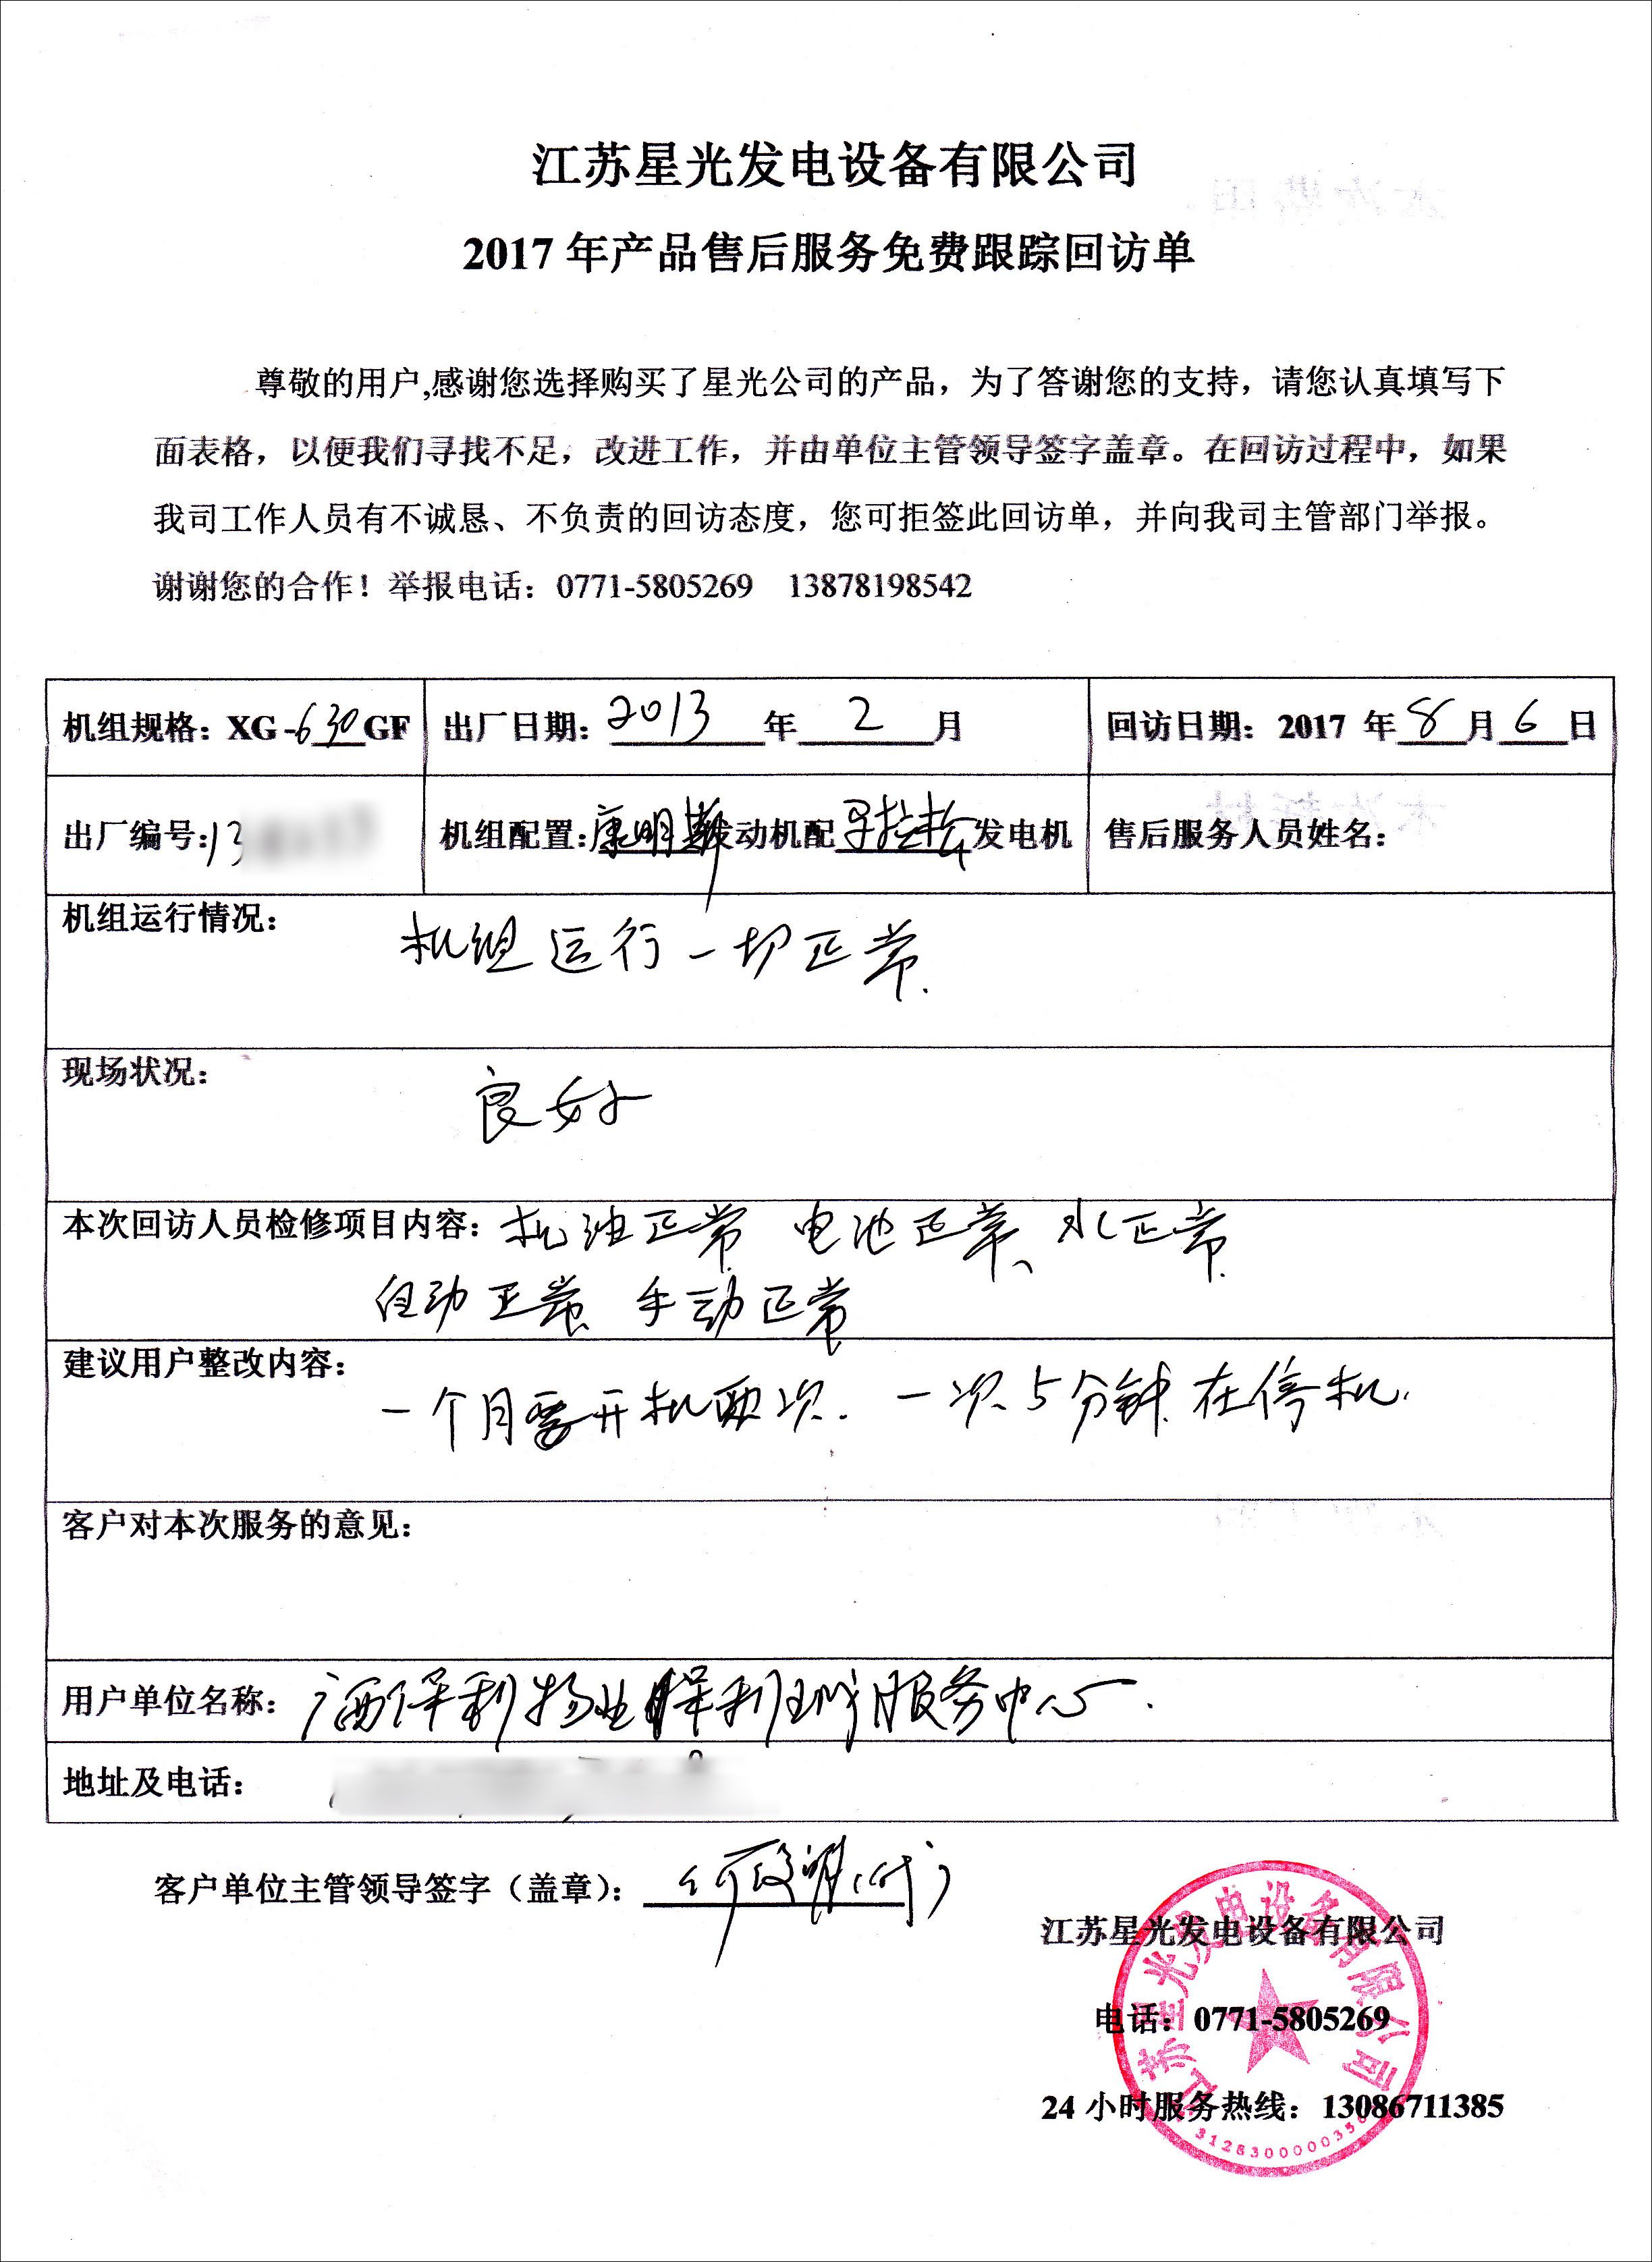 江苏星光发电设备有限公司
2017 年产品售后服务免费跟踪回访单
尊敬的用户,感谢您选择购买了星光公司的产品，为了答谢您的支持，请您认真填写下
面表格，以便我们寻找不足，改进工作，并由单位主管领导签字盖章。在回访过程中，如果
我司工作人员有不诚恳、不负责的回访态度，您可拒签此回访单，并向我司主管部门举报。
谢谢您的合作！举报电话：0771-5805269 13878198542
机组规格：XG-630GF 出厂日期：2013 年 2 月 回访日期：2017 年 8 月 6 日
出厂编号：13 机组配置：康明斯发动机配马拉松发电机 售后服务人员姓名：
机组运行情况：
机组运行一切正常.
现场状况：
良好
本次回访人员检修项目内容：机油正常 电池正常、水正常
自动正常 手动正常
建议用户整改内容：
一个月要开机两次. 一次5分钟在停机.
客户对本次服务的意见：
用户单位名称：广西保利物业保利城服务中心.
地址及电话：
客户单位主管领导签字（盖章）：
江苏星光发电设备有限公司
电话：0771-5805269
24 小时服务热线：13086711385
江苏星光发电设备有限公司